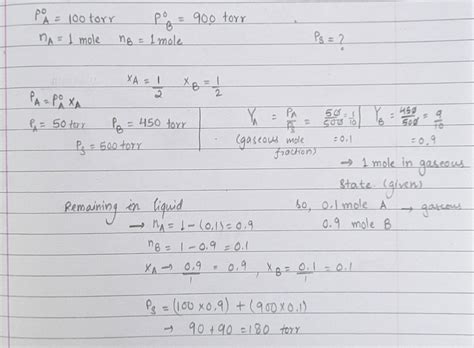 P°A = 100 torr P°B = 900 torr
nA = 1 mole nB = 1 mole Ps = ?
xA = 1/2 xB = 1/2
PA = P°A xA
PA = 50 torr PB = 450 torr
Ps = 500 torr
YA = PA/Ps = 50/500 = 1/10
= 0.1
(gaseous mole
fraction)
YB = 450/500 = 9/10
= 0.9
→ 1 mole in gaseous
state (given)
so, 0.1 mole A → gaseous
0.9 mole B
Remaining in liquid
→ nA = 1 - (0.1) = 0.9
nB = 1 - 0.9 = 0.1
xA → 0.9/1 = 0.9, xB = 0.1/1 = 0.1
Ps = (100 x 0.9) + (900 x 0.1)
→ 90 + 90 = 180 torr